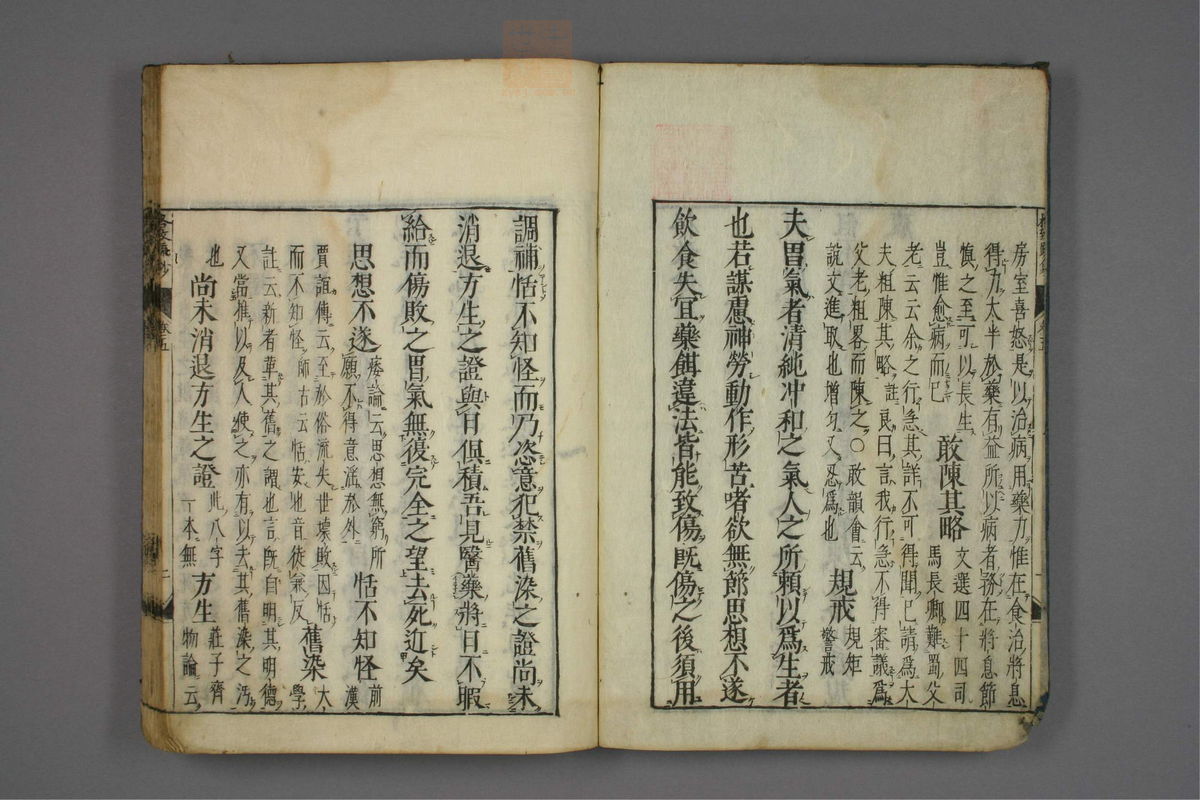 房室喜怒是以治病用藥力惟在食治將息
得力太半於藥有益所以病者務在將息節
慎之至可以長生
豈惟愈病而已
敢陳其略
文選四十四司
馬長卿難蜀父
老云云余之行急其詳不可得聞已請為大
夫粗陳其略註良曰言我行急不得審議為
父老粗畧而陳之〇敢韻會云
說文進取也增勾又忍為也
規戒
規矩
警戒
夫胃氣者清純冲和之氣人之所賴以為生者
也若謀慮神勞動作形苦嗜欲無節思想不遂
飲食失宜藥餌違法皆能致傷既傷之後須用
調補恬不知怪而乃恣意犯禁舊染之證尚未
消退方生之證與日俱積吾見醫藥將日不暇
給而傷敗之胃氣無復完全之望去死近矣
思想不遂
痿論云思想無窮所
願不得意淫於外
恬不知怪
前漢
賈誼傳云至於俗流失世壞敗因恬
而不知怪師古云恬安也音徒兼反
舊染
大學
註云新者革其舊之謂也言既自明其明德
又當推以及人使之亦有以去其舊染之汚
也
尚未消退方生之證
此八字
一本無
方生
莊子齊
物論云